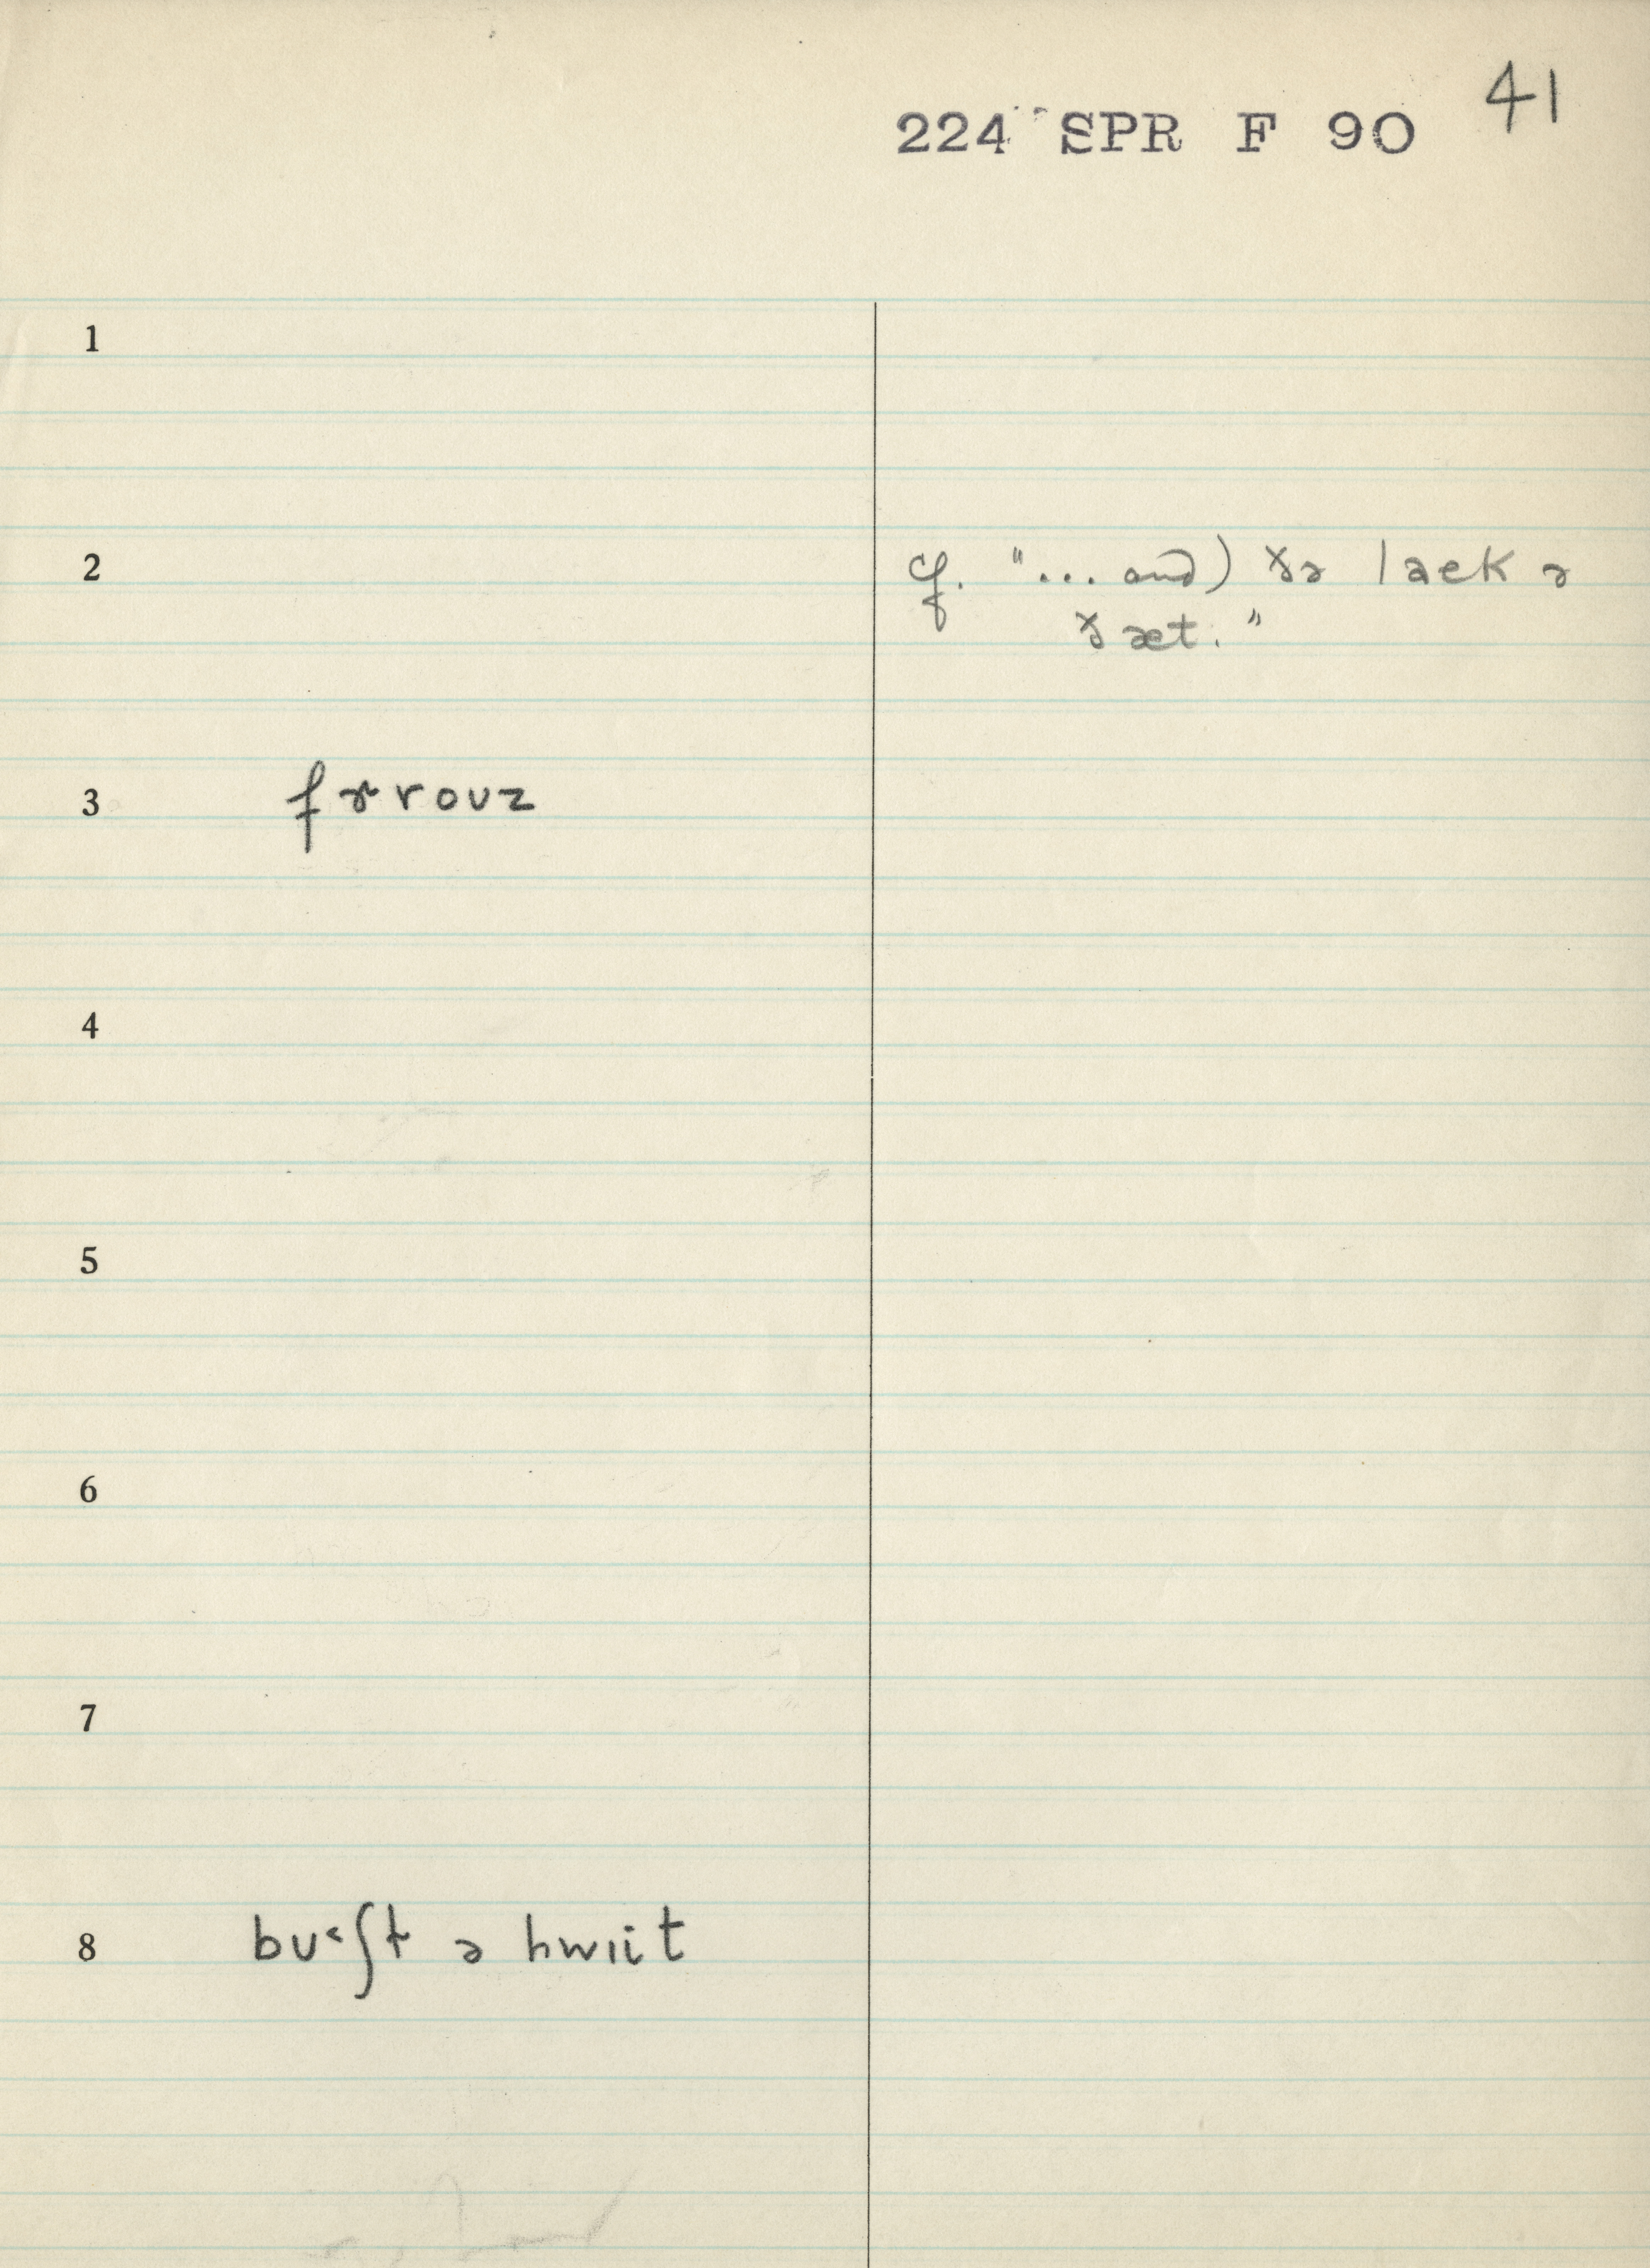 41
224 SPR F 90
1
2 cf. "... and) ðə laek ə
ðæt."
3 fɚrouz
4
5
6
7
8 bu˂ʃt ə hwiit